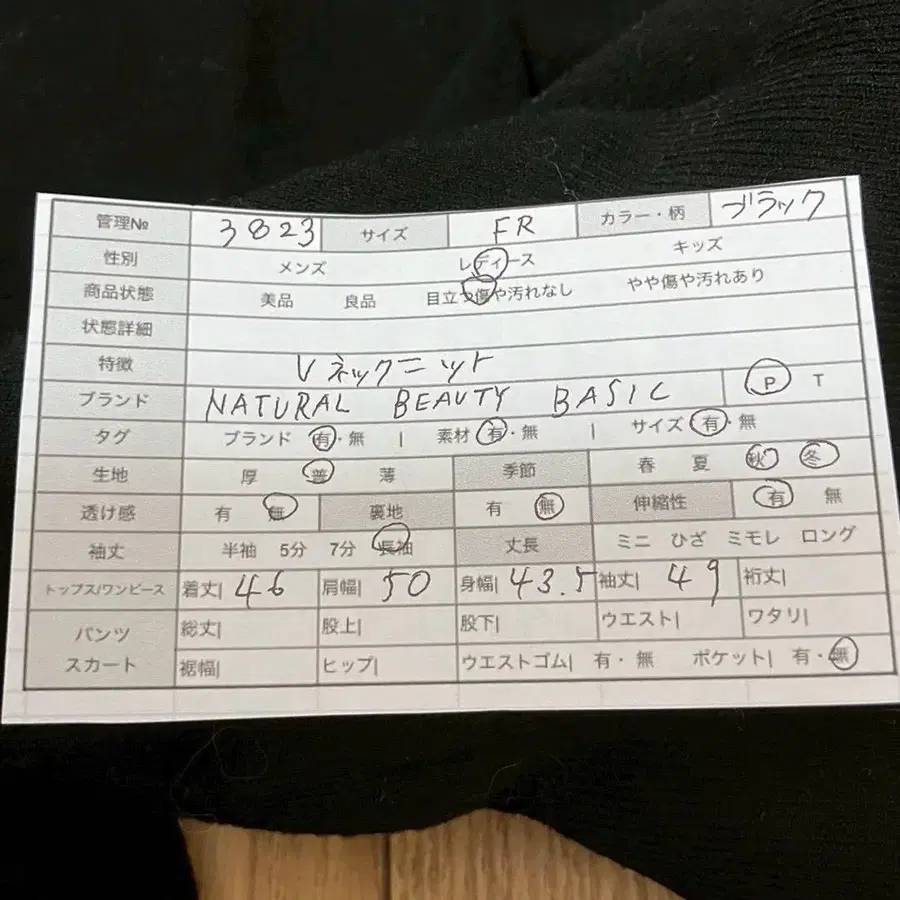 管理№ 3823 サイズ FR カラー・柄 ブラック
性別 メンズ レディース キッズ
商品状態 美品 良品 目立つ傷や汚れなし やや傷や汚れあり
状態詳細
特徴 Vネックニット
ブランド NATURAL BEAUTY BASIC P T
タグ ブランド 有・無 | 素材 有・無 | サイズ 有・無
生地 厚 普 薄 季節 春 夏 秋 冬
透け感 有 無 裏地 有 無 伸縮性 有 無
袖丈 半袖 5分 7分 長袖 丈長 ミニ ひざ ミモレ ロング
トップス/ワンピース 着丈| 46 肩幅| 50 身幅| 43.5 袖丈| 49 裄丈|
パンツ 総丈| 股上| 股下| ウエスト| ワタリ|
スカート 裾幅| ヒップ| ウエストゴム| 有・無 ポケット| 有・無